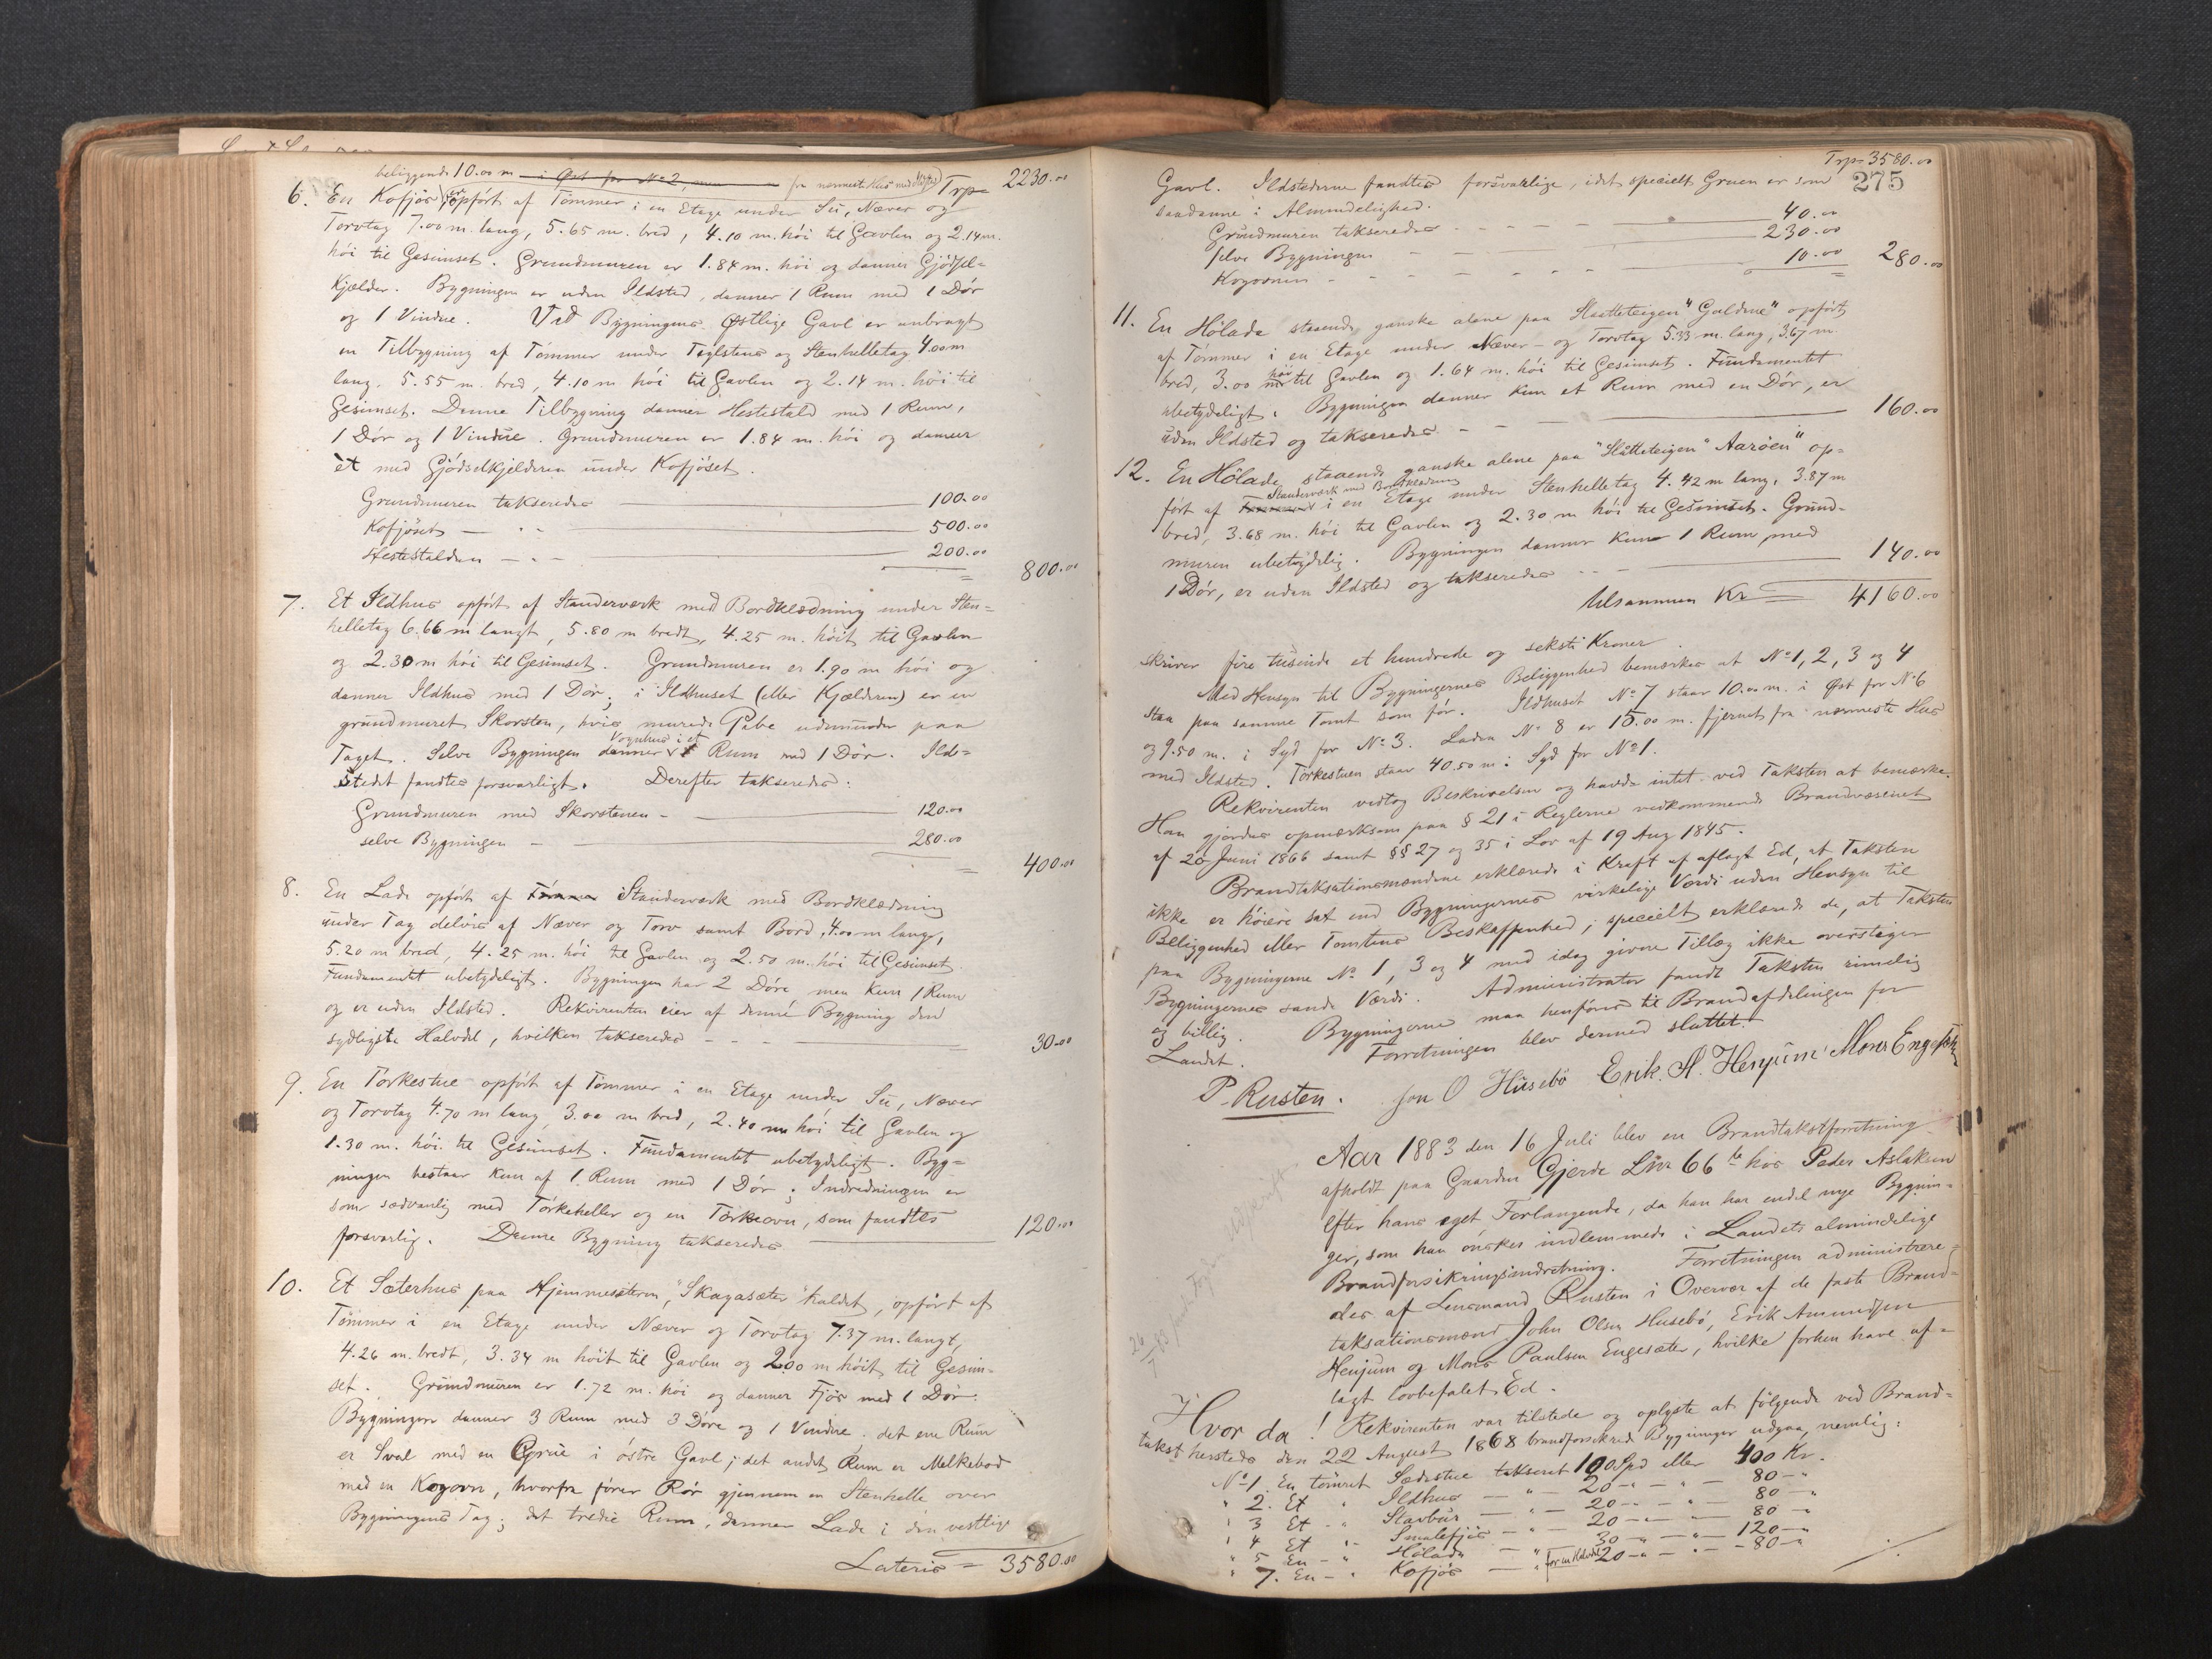 beliggende 10.00 m i Øst for No 2, fra nærmeste Hus med Ildsted
Trp. 2230.00
6. En Kofjös er opført af Tömmer i en Etage under Su, Næver og
Torvtag 7.00 m. lang, 5.65 m. bred, 4.10 m. höi til Gavlen og 2.14 m.
höi til Gesimset. Grundmuren er 1.84 m. höi og danner Gjödsel=
kjælder. Bygningen er uden Ildsted, danner 1 Rum med 1 Dör
og 1 Vindue. Ved Bygningens østlige Gavl er anbragt
en Tilbygning af Tömmer under Teglstens og Stenhelletag 4.00 m
lang, 5.55 m. bred, 4.10 m höi til Gavlen og 2.14 m. höi til
Gesimset. Denne Tilbygning danner Hestestald med 1 Rum,
1 Dör og 1 Vindue. Grundmuren er 1.84 m. höi og danner
èt med Gjödselkjelderen under Kofjöset.
Grundmuren takseredes 100.00
Kofjöset — 500.00
Hestestalden — 200.00
= 800.00
7. Et Ildhus opfört af Standerværk med Bordklædning under Sten=
helletag 6.66 m langt, 5.80 m bredt, 4.25 m. höit til Gavlen
og 2.30 m höi til Gesimset. Grundmuren er 1.90 m höi og
danner Ildhus med 1 Dör; i Ildhuset (eller Kjældren) er en
grundmuret Skorsten, hvis murede Pibe udmunder paa
Taget. Selve Bygningen danner Vognhus i et Rum med 1 Dör. Ild=
stedet fandtes forsvarligt. Derefter takseredes:
Grundmuren med Skorstenen - 120.00
selve Bygningen - 280.00
= 400.00
8. En Lade opfört af Tömmer i Standerværk med Bordklædning
under Tag delvis af Næver og Torv samt Bord, 4.00 m lang,
5.20 m bred, 4.25 m. höi til Gavlen og 2.50 m. höi til Gesimset.
Fundamentet ubetydeligt. Bygningen har 2 Döre men kun 1 Rum
og er uden Ildsted. Rekvirenten eier af denne Bygning den
sydligste Halvdel, hvilken takseredes - - - = 30.00
9. En Torkestue opfört af Tömmer i en Etage under Su, Næver
og Torvtag 4.70 m lang, 3.00 m bred, 2.40 m höi til Gavlen og
1.30 m. höi til Gesimset. Fundamentet ubetydeligt. Byg=
ningen bestaar kun af 1 Rum med 1 Dör; Indredningen er
som sædvanlig med Törkeheller og en Törkeovn, som fandtes
forsvarlig. Denne Bygning takseredes 120.00
10. Et Sæterhus paa Hjemmesæteren, "Skagasæter" kaldet, opført af
Tömmer i en Etage under Næver og Torvtag 7.37 m. langt,
4.26 m. bredt, 3.34 m höit til Gavlen og 2.00 m höit til Gesim-
set. Grundmuren er 1.72 m. höi og danner Fjös med 1 Dör.
Bygningen danner 3 Rum med 3 Döre og 1 Vindue. det ene Rum
er Sval med en Grue i östre Gavl; det andet Rum er Melkebod
med en Kogovn, hvorfra fører Rör gjennem en Stenhelle over
Bygningens Tag; det tredie Rum, danner Lade i den vestlige
Lateris = 3580.00
Trp. 3580.00
275
Gavl. Ildstederne fandtes forsvarlige, idet specielt Gruen er som
saadanne i Almindelighed.
Grundmuren takseredes - - - - 40.00
selve Bygningen - - 230.00
Kogovnen - - - - - 10.00
= 280.00
11. En Hölade staaende ganske alene paa Slaatteteigen "Galdene" opfört
af Tömmer i en Etage under Næver- og Torvtag 5.33 m. lang, 3.67 m
bred, 3.00 m höi til Gavlen og 1.64 m. höi til Gesimset. Fundamentet
ubetydeligt. Bygningen danner kun et Rum med en Dör, er
uden Ildsted og takseredes - - 160.00
12. En Hölade, staaende ganske alene paa "Slåtteteigen" Aaröen" op=
fört af Tömmer Standerværk med Bordklædning i en Etage under Stenhelletag 4.42 m lang, 3.87 m
bred, 3.68 m. höi til Gavlen og 2.30 m höi til Gesimset. Grund-
muren ubetydelig. Bygningen danner kun 1 Rum med
1 Dör, er uden Ildsted og takseredes - - 140.00
tilsammen Kr = 4160.00
skriver fire tusinde et hundrede og seksti Kroner.
Med Hensyn til Bygningernes Beliggenhed bemærkes at No 1, 2, 3 og 4
staa paa samme Tomt som för. Ildhuset No 7 staar 10.00 m. i Øst for No 6
og 9.50 m. i Syd for No 3. Laden No 8 er 15.00 m. fjernet fra nærmeste Hus
med Ildsted. Törkestuen staar 40.50 m. i Syd for No 1.
Rekvirenten vedtog Beskrivelsen og havde intet ved Taksten at bemærke.
Han gjordes opmærksom paa § 21 i Reglerne vedkommende Brandvæsenet
af 20 Juni 1866 samt §§ 27 og 35 i Lov af 19 Aug 1845.
Brandtaksationsmændene erklærede i Kraft af aflagt Ed, at Taksten
ikke er höiere sat end Bygningernes virkelige Værdi uden Hensyn til
Beliggenhed eller Tomtens Beskaffenhed; specielt erklærede de, at Taksten
paa Bygningerne No 1, 3 og 4 med idag givne Tillæg ikke overstiger
Bygningernes sande Værdi. Administrator fandt Taksten rimelig
og billig. Bygningerne maa henföres til Brandafdelingen for
Landet. Forretningen blev dermed sluttet.
P. Rusten. Jon O Husebö Erik A. Henjum Mons Engesæter
Aar 1883 den 16 Juli blev en Brandtakstforretning
afholdt paa Gaarden Gjerde Lnr 66 hos Peder Aslaksen
efter hans eget Forlangende, da han har endel nye Bygnin-
ger, som han önsker indlemmede i Landets almindelige
Brandforsikringsindretning. Forretningen administrere-
des af Lensmand Rusten i Overvær af de faste Brand-
taksationsmænd John Olsen Husebö, Erik Amundsen
Henjum og Mons Paulsen Engesæter, hvilke forhen have af-
lagt lovbefalet Ed.
Hvor da! Rekvirenten var tilstede og oplyste at følgende ved Brand-
takst hersteds den 22 August 1868 brandforsikrede Bygninger udgaa, nemlig:
No 1. En tömret Sædestue takseret 100 Spd eller 400 Kr.
" 2. Et " Ildhus — " — 20 — " — 80 — "
" 3 Et - " Stavbur — " — 20 — " — 80 — "
" 4 Et " Smalefjös — " — 20 — " — 80 — "
" 5 En - " Hölade — " 30 — " — 120 — "
" 7. En - " Kofjös — " for en Halvdel 20 — " — 80 — "